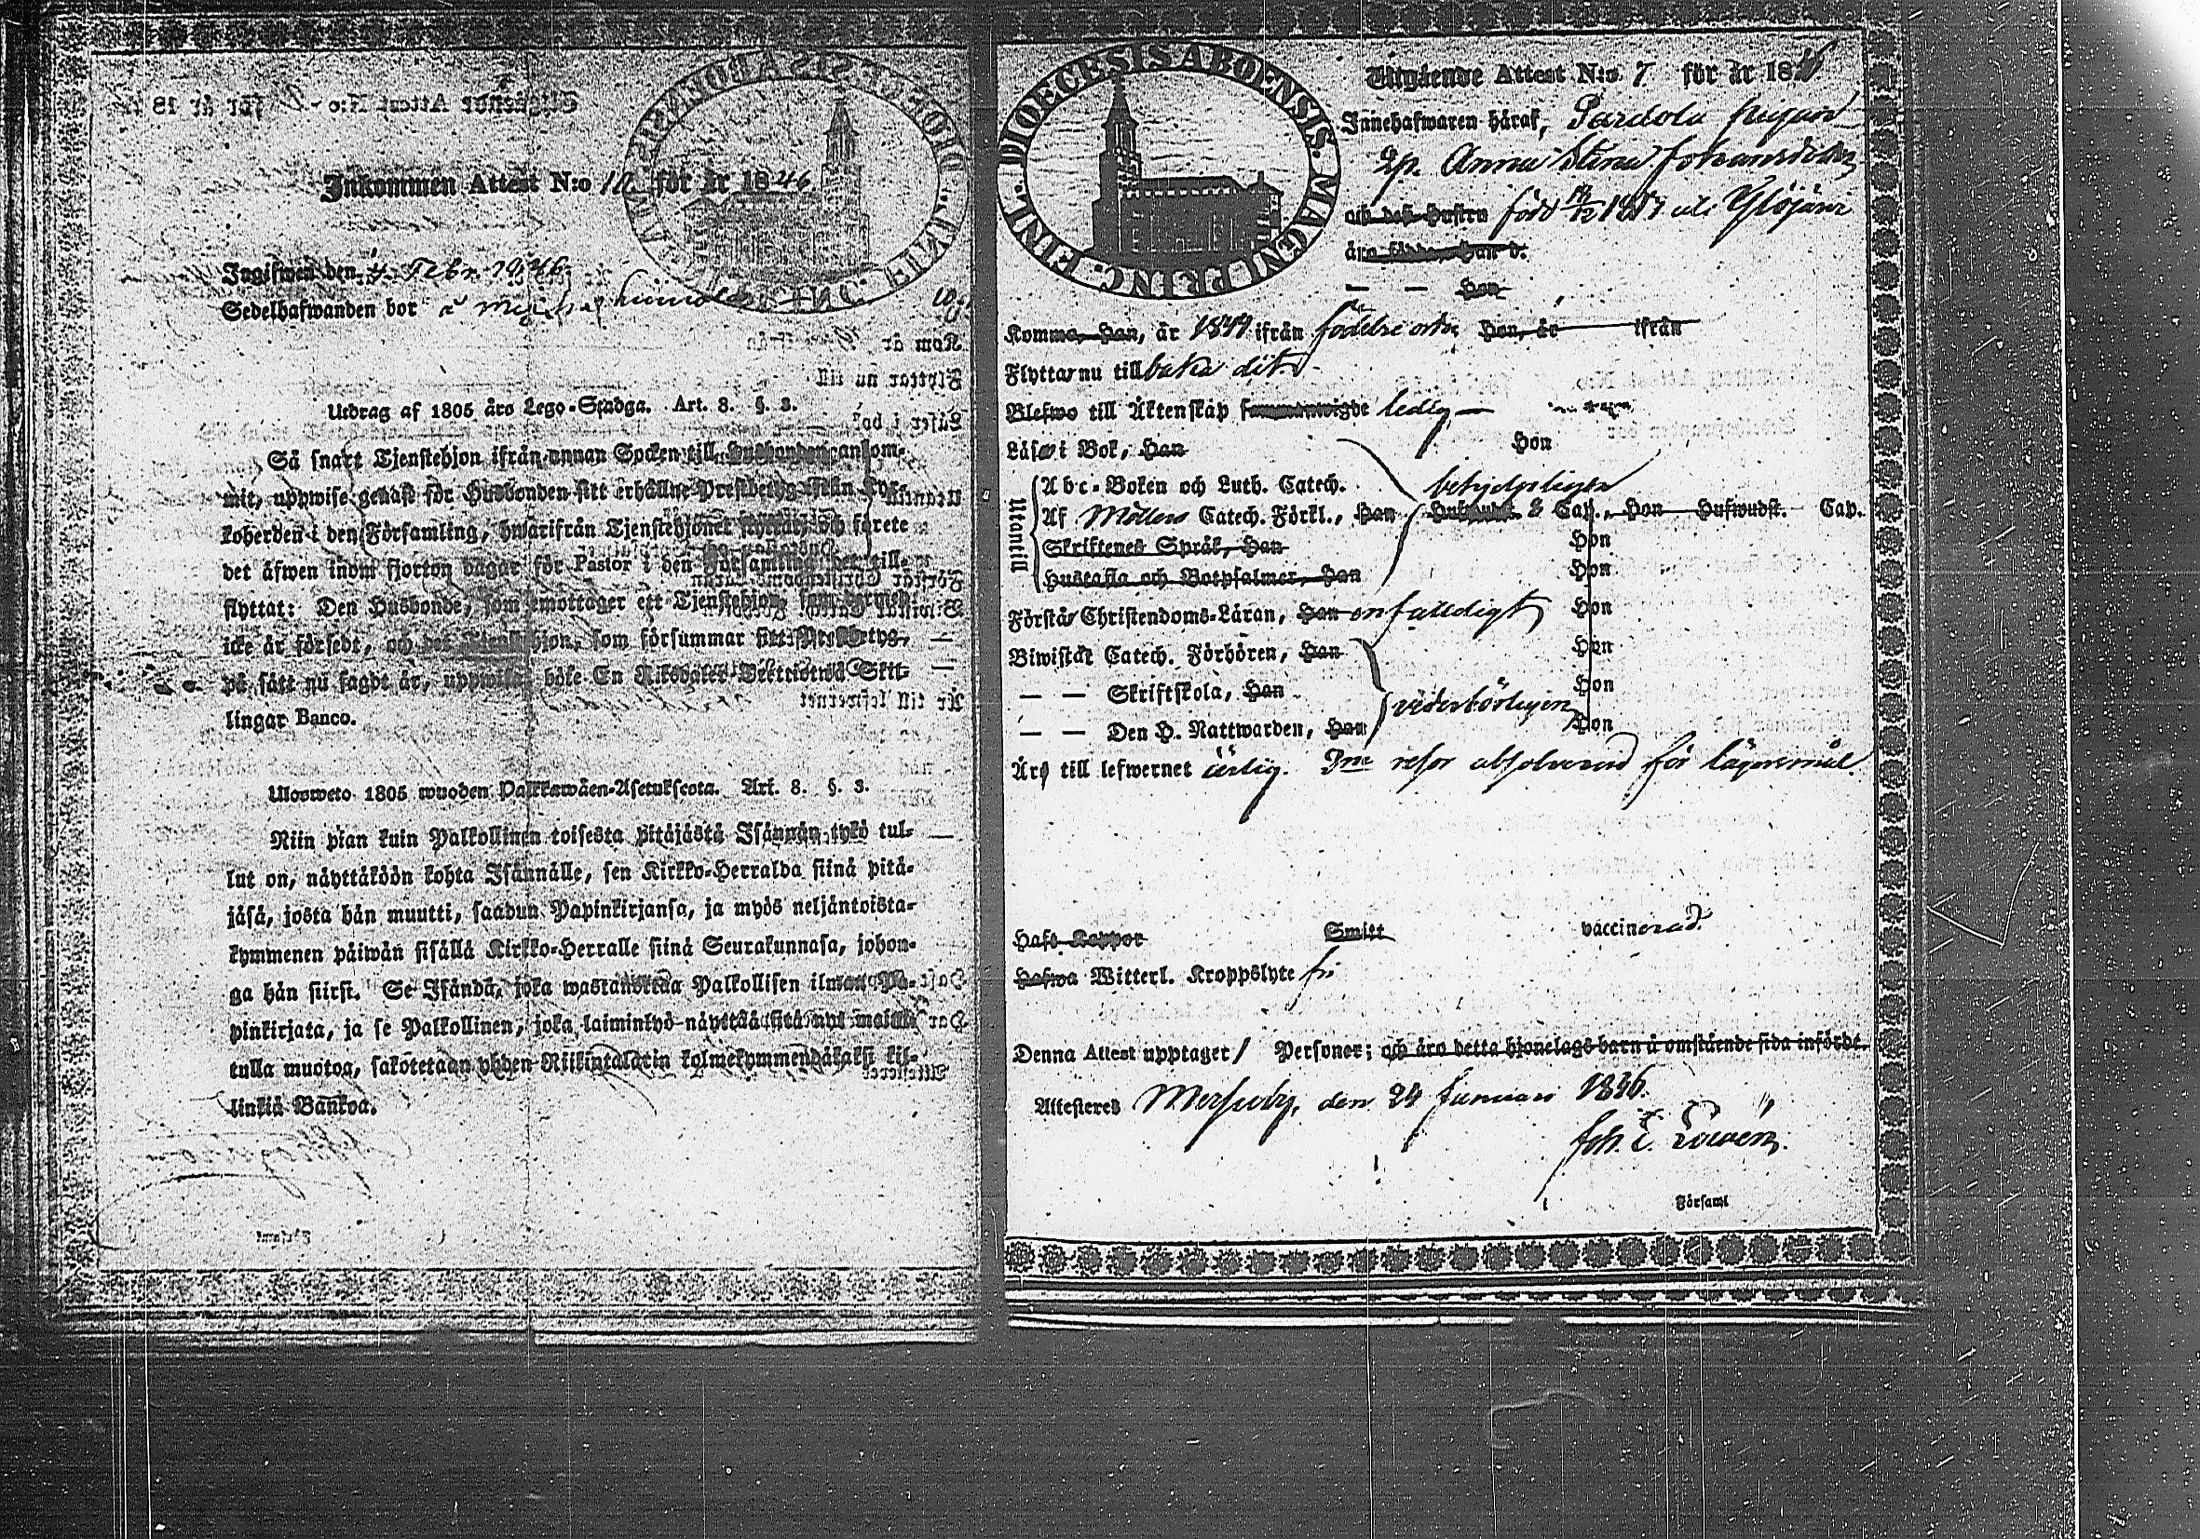 Inkommen Attest N:o för år 1846
Ingifwen den 4 Febr. 1846.
Sedelhafwanden bor å
Utdrag af 1805 års Lego-Stadga. Art. 8. §. 3.
Så snart Tjenstehjon ifrån annan Socken till Husbonden ankom-
mit, uppwise genast för Husbonden sitt erhållne Prestbetyg ifrån Kyr-
koherden i den Församling, hwarifrån Tjenstehjonet flyttat, och förete
det äfwen inom fjorton dagar för Pastor i den Församling det till-
flyttat: Den Husbonde, som emottager ett Tjenstehjon, som dermed
icke är försedt, och det Tjenstehjon, som försummar sitt Prestbetyg,
på sätt nu sagdt är, uppwisa, böte En Riksdaler Trettiotwå Skil-
lingar Banco.
Ulosweto 1805 wuoden Palkkawäen-Asetuksesta. Art. 8. §. 3.
Niin pian kuin Palkollinen toisesta pitäjästä Isännän tykö tul-
lut on, näyttäköön kohta Isännälle, sen Kirkko-Herralda siinä pitä-
jäsä, josta hän muutti, saadun Papinkirjansa, ja myös neljäntoista-
kymmenen päiwän sisällä Kirkko-Herralle siinä Seurakunnasa, johon-
ga hän siirsi. Se Isändä, joka wastanottaa Palkollisen ilman Pa-
pinkirjata, ja se Palkollinen, joka laiminlyö näyttää sitä nyt mainit-
tulla muotoa, sakotetaan yhden Riikintalarin kolmekymmendäkaksi kil-
linkiä Bankoa.
DIOECESIS ABOENSIS. MAGNI PRINC. FINL.
Utgående Attest N:o 7 för år 1846
Innehafwaren häraf, Pardola pigan
Anna Stina Johansdotter
och dess Hustru född 1807 uti Ylöjärvi
äro födde, Han d.
— — Hon
Komme, Han, år 1844 ifrån födelse orten Hon, år ifrån
Flyttar nu till baka dit
Blefwo till Äktenskap sammanwigde ledig
Läser i Bok, Han Hon
Utantill
Abc-Boken och Luth. Catech. behjelpligen
Af Möllers Catech. Förkl., Han Hufwudst. 2 Cap., Hon Hufwudst. Cap.
Skriftenes Språk, Han Hon
Hustafla och Botpsalmer, Han Hon
Förstår Christendoms-Läran, Han enfaldigt Hon
Biwistat Catech. Förhören, Han Hon
— — Skriftskola, Han Hon
— — Den H. Nattwarden, Han vederbörligen Hon
Äro till lefwernet ärlig. 3ne resor absolverad för lägersmål.
Haft Koppor Smitt vaccinerad.
Hafwa Witterl. Kroppslyte fri
Denna Attest upptager 1 Personer; och äro detta hjonelags barn å omstående sida införde.
Attesteres Messuby, den 24 Januari 1846.
Joh. E.
Församl